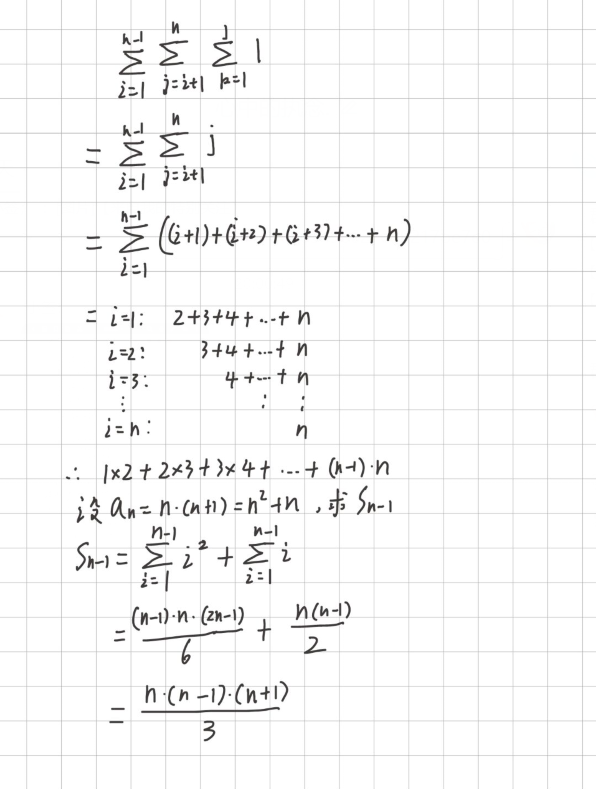 \sum_{i=1}^{n-1} \sum_{j=i+1}^{n} \sum_{k=1}^{j} 1
= \sum_{i=1}^{n-1} \sum_{j=i+1}^{n} j
= \sum_{i=1}^{n-1} ((i+1)+(i+2)+(i+3)+⋯+n)
= i=1: 2+3+4+⋯+n
i=2: 3+4+⋯+n
i=3: 4+⋯+n
⋮ ⋮ ⋮
i=n: n
∴ 1×2+2×3+3×4+⋯+(n-1)·n
设 a_n=n·(n+1)=n^2+n,求 S_{n-1}
S_{n-1} = \sum_{i=1}^{n-1} i^2 + \sum_{i=1}^{n-1} i
= \frac{(n-1)·n·(2n-1)}{6} + \frac{n(n-1)}{2}
= \frac{n·(n-1)·(n+1)}{3}